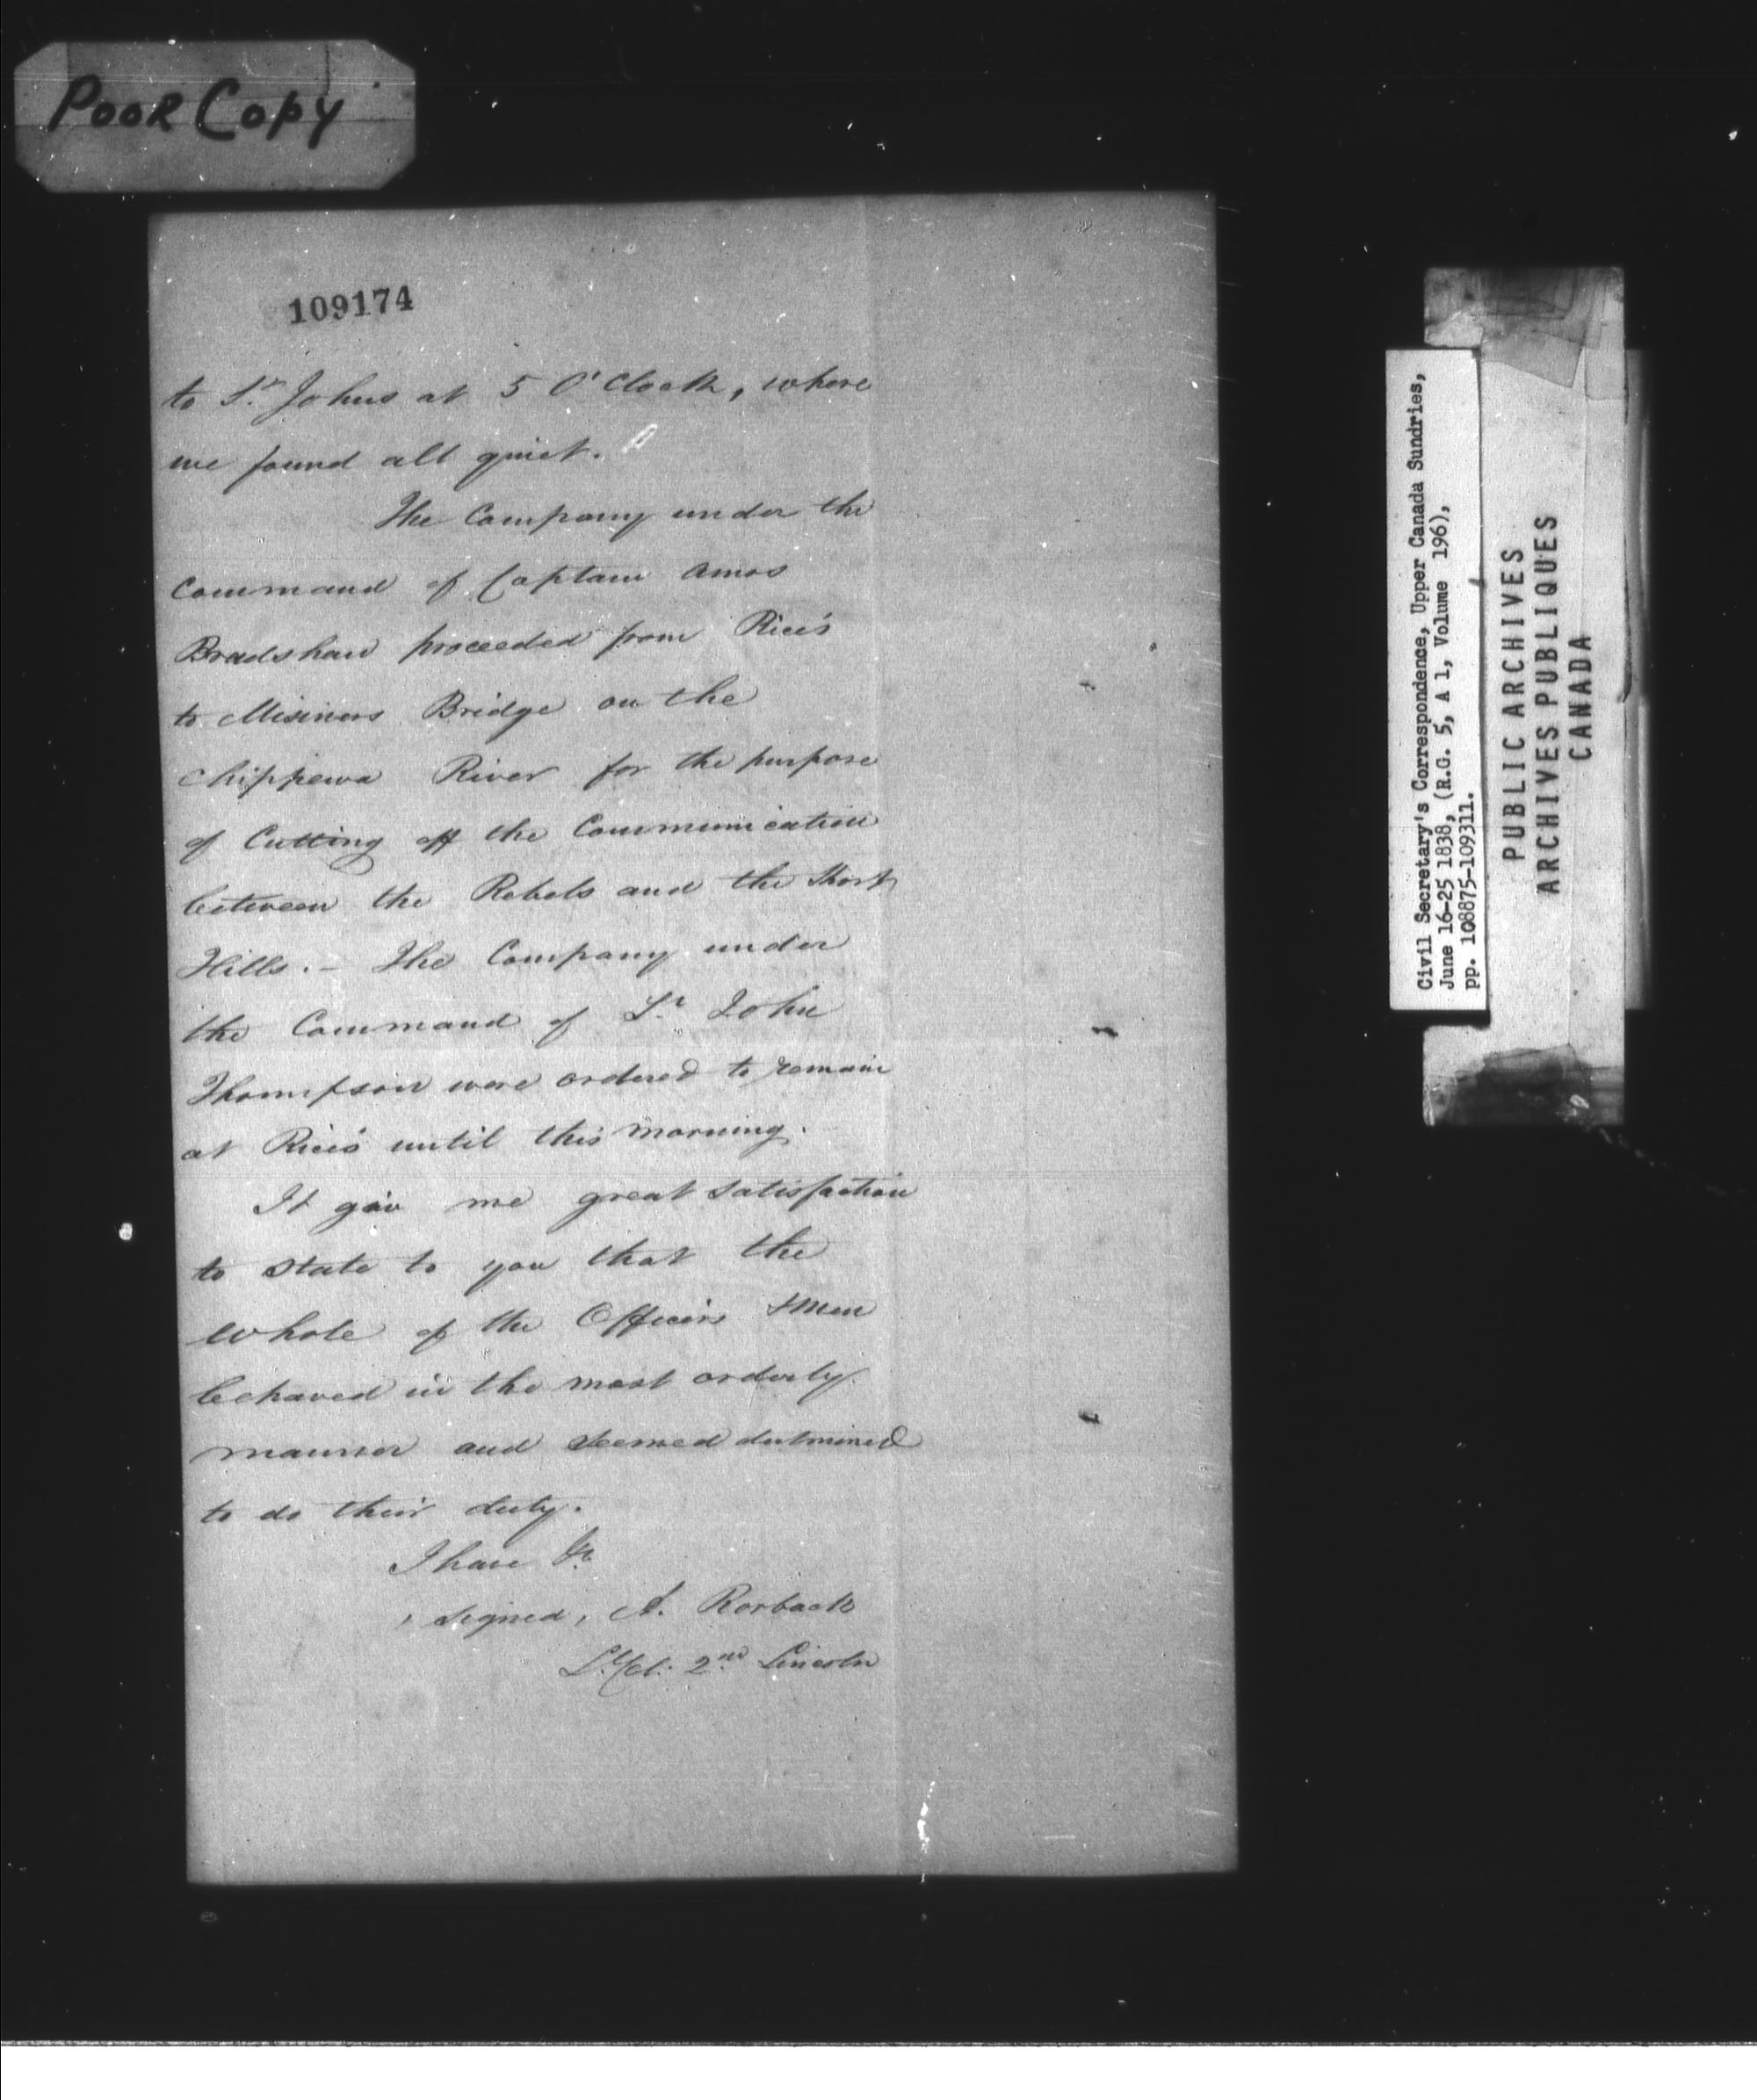 POOR COPY
109174
to St. Johns at 5 O'Clock, where
we found all quiet.
The Company under the
Command of Captain Amos
Bradshaw proceeded from Rice's
to Misiners Bridge on the
Chippewa River for the purpose
of Cutting off the Communication
between the Rebels and the Short
Hills. - The Company under
the Command of Lt. John
Thompson were ordered to remain
at Rice's until this morning.
It give me great satisfaction
to state to you that the
whole of the Officers & Men
behaved in the most orderly
manner and seemed determined
to do their duty.
I have &c
, signed, A. Rorback
Lt. Col. 2nd Lincoln
Civil Secretary's Correspondence, Upper Canada Sundries,
June 16-25 1838, (R.G. 5, A 1, Volume 196),
pp. 108875-109311.
PUBLIC ARCHIVES
ARCHIVES PUBLIQUES
CANADA